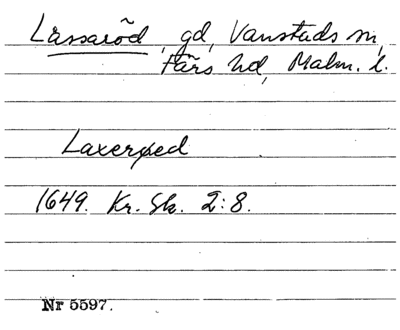 Lässaröd, gd, Vanstads sn,
Färs hd, Malm. l.
Laxerød
1649. Kr. Sk. 2:8.
Nr 5597.